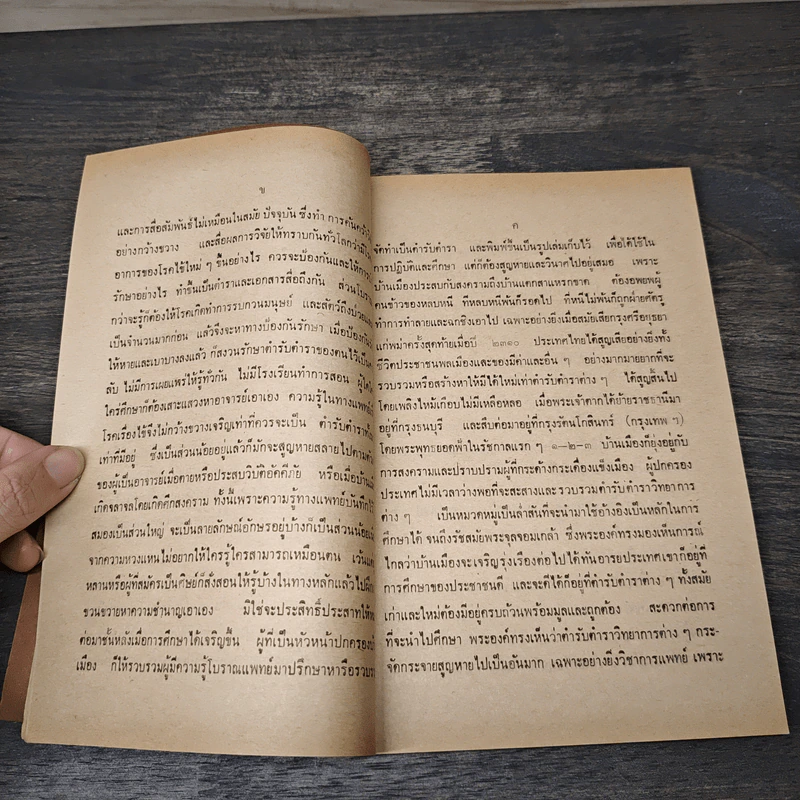 ข
และการสื่อสัมพันธ์ไม่เหมือนในสมัย ปัจจุบัน ซึ่งทำ การค้นคว้า
อย่างกว้างขวาง และสื่อผลการวิจัยให้ทราบกันทั่วโลกว่ามี
อาการของโรคไข้ใหม่ ๆ ขึ้นอย่างไร ควรจะป้องกันและให้การ
รักษาอย่างไร ทำขึ้นเป็นตำราและเอกสารสื่อถึงกัน ส่วนโบรา
กว่าจะรู้ก็ต้องให้โรคเกิดทำการรบกวนมนุษย์ และสัตว์ถึงป่วย
เป็นจำนวนมากก่อน แล้วจึงจะหาทางป้องกันรักษา เมื่อป้องกัน
ให้หายและเบาบางลงแล้ว ก็สงวนรักษาตำรับตำราของตนไว้เป็น
ลับ ไม่มีการเผยแพร่ให้รู้ทั่วกัน ไม่มีโรงเรียนทำการสอน ผู้ใด
ใคร่ศึกษาก็ต้องเสาะแสวงหาอาจารย์เอาเอง ความรู้ในทางแพทย์
โรคเรื่องไข้จึงไม่กว้างขวางเจริญเท่าที่ควรจะเป็น ตำรับตำรา
เท่าที่มีอยู่ ซึ่งเป็นส่วนน้อยอยู่แล้วก็มักจะสูญหายสลายไปตาม
ของผู้เป็นอาจารย์เมื่อตายหรือประสบวิบัติอัคคีภัย หรือเมื่อบ้าน
เกิดจลาจลโดยเกิดศึกสงคราม ทั้งนี้เพราะความรู้ทางแพทย์บันทึกไว้
สมองเป็นส่วนใหญ่ จะเป็นลายลักษณ์อักษรอยู่บ้างก็เป็นส่วนน้อย
จากความหวงแหนไม่อยากให้ใครรู้ใครสามารถเหมือนตน เว้นแต่
หลานหรือผู้ที่สมัครเป็นศิษย์ก็สั่งสอนให้รู้บ้างในทางหลักแล้วไปฝึก
ขวนขวายหาความชำนาญเอาเอง มิใช่จะประสิทธิ์ประสาทให้
ต่อมาชั้นหลังเมื่อการศึกษาได้เจริญขึ้น ผู้ที่เป็นหัวหน้าปกครอง
เมือง ก็ให้รวบรวมผู้มีความรู้โบราณแพทย์มาปรึกษาหารือรวบร
ค
จัดทำเป็นตำรับตำรา และพิมพ์ขึ้นเป็นรูปเล่มเก็บไว้ เพื่อได้ใช้ใน
การปฏิบัติและศึกษา แต่ก็ต้องสูญหายและวินาศไปอยู่เสมอ เพราะ
บ้านเมืองประสบกับสงครามถึงบ้านแตกสาแหรกขาด ต้องอพยพผู้
คนข้าวของหลบหนี ที่หลบหนีพ้นก็รอดไป ที่หนีไม่พ้นก็ถูกฝ่ายศัตรู
ทำการทำลายและฉกชิงเอาไป เฉพาะอย่างยิ่งเมื่อสมัยเสียกรุงศรีอยุธยา
แก่พม่าครั้งสุดท้ายเมื่อปี ๒๓๑๐ ประเทศไทยได้สูญเสียอย่างยิ่งทั้ง
ชีวิตประชาชนพลเมืองและของมีค่าและอื่น ๆ อย่างมากมายยากที่จะ
รวบรวมหรือสร้างหาให้มีได้ใหม่เท่าตำรับตำราต่าง ๆ ได้สูญสิ้นไป
โดยเพลิงไหม้เกือบไม่มีเหลือหลอ เมื่อพระเจ้าตากได้ย้ายราชธานีมา
อยู่ที่กรุงธนบุรี และสืบต่อมาอยู่ที่กรุงรัตนโกสินทร์ (กรุงเทพ ฯ)
โดยพระพุทธยอดฟ้าในรัชกาลแรก ๆ ๑–๒–๓ บ้านเมืองก็ยุ่งอยู่กับ
การสงครามและปราบปรามผู้ที่กระด้างกระเดื่องแข็งเมือง ผู้ปกครอง
ประเทศไม่มีเวลาว่างพอที่จะสะสางและรวบรวมตำรับตำราวิทยาการ
ต่าง ๆ เป็นหมวดหมู่เป็นล่ำสันที่จะนำมาใช้อ้างอิงเป็นหลักในการ
ศึกษาได้ จนถึงรัชสมัยพระจุลจอมเกล้า ซึ่งพระองค์ทรงมองเห็นการณ์
ไกลว่าบ้านเมืองจะเจริญรุ่งเรืองต่อไปได้ทันอารยประเทศเขาก็อยู่ที่
การศึกษาของประชาชนดี และจะดีได้ก็อยู่ที่ตำรับตำราต่าง ๆ ทั้งสมัย
เก่าและใหม่ต้องมีอยู่ครบถ้วนพร้อมมูลและถูกต้อง สะดวกต่อการ
ที่จะนำไปศึกษา พระองค์ทรงเห็นว่าตำรับตำราวิทยาการต่าง ๆ กระ-
จัดกระจายสูญหายไปเป็นอันมาก เฉพาะอย่างยิ่งวิชาการแพทย์ เพราะ